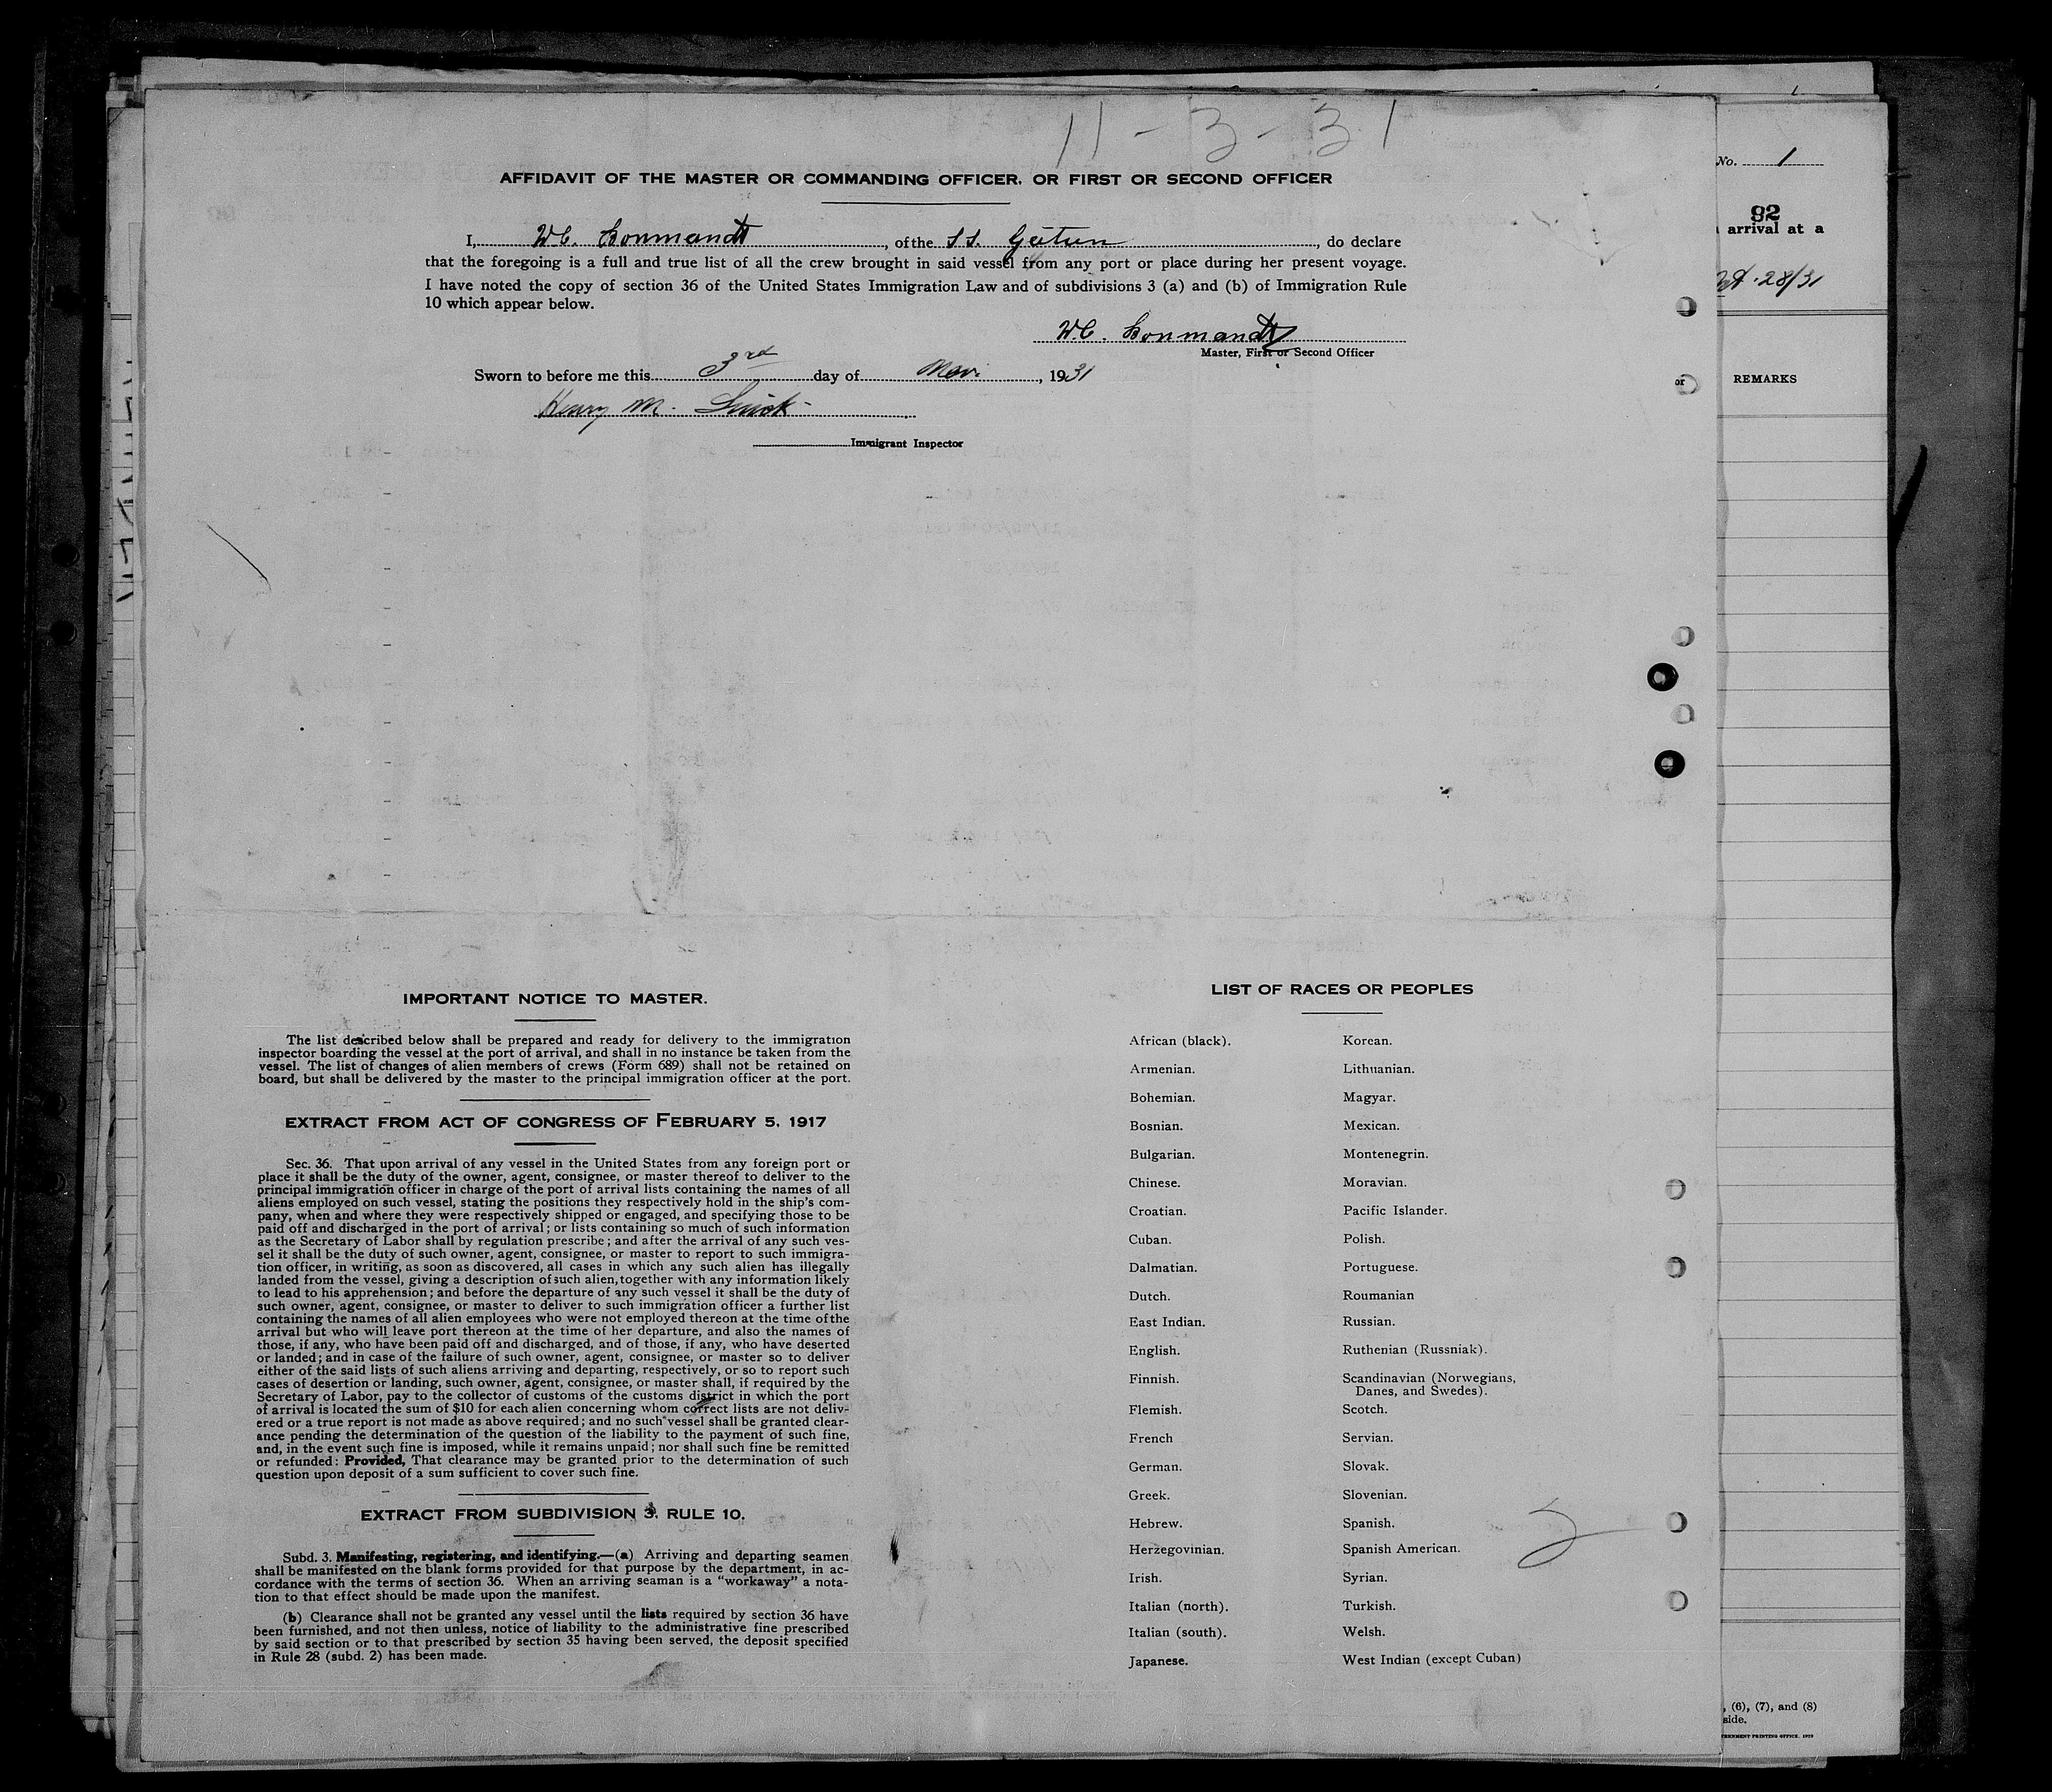 11-3-31
AFFIDAVIT OF THE MASTER OR COMMANDING OFFICER, OR FIRST OR SECOND OFFICER
I, W.C. , of the S.S. Gatun , do declare
that the foregoing is a full and true list of all the crew brought in said vessel from any port or place during her present voyage.
I have noted the copy of section 36 of the United States Immigration Law and of subdivisions 3 (a) and (b) of Immigration Rule
10 which appear below.
W.C.
Master, First or Second Officer
Sworn to before me this 3rd day of Nov. , 1931
Henry M.
Immigrant Inspector
IMPORTANT NOTICE TO MASTER.
The list described below shall be prepared and ready for delivery to the immigration
inspector boarding the vessel at the port of arrival, and shall in no instance be taken from the
vessel. The list of changes of alien members of crews (Form 689) shall not be retained on
board, but shall be delivered by the master to the principal immigration officer at the port.
EXTRACT FROM ACT OF CONGRESS OF FEBRUARY 5, 1917
Sec. 36. That upon arrival of any vessel in the United States from any foreign port or
place it shall be the duty of the owner, agent, consignee, or master thereof to deliver to the
principal immigration officer in charge of the port of arrival lists containing the names of all
aliens employed on such vessel, stating the positions they respectively hold in the ship's com-
pany, when and where they were respectively shipped or engaged, and specifying those to be
paid off and discharged in the port of arrival; or lists containing so much of such information
as the Secretary of Labor shall by regulation prescribe; and after the arrival of any such ves-
sel it shall be the duty of such owner, agent, consignee, or master to report to such immigra-
tion officer, in writing, as soon as discovered, all cases in which any such alien has illegally
landed from the vessel, giving a description of such alien, together with any information likely
to lead to his apprehension; and before the departure of any such vessel it shall be the duty of
such owner, agent, consignee, or master to deliver to such immigration officer a further list
containing the names of all alien employees who were not employed thereon at the time of the
arrival but who will leave port thereon at the time of her departure, and also the names of
those, if any, who have been paid off and discharged, and of those, if any, who have deserted
or landed; and in case of the failure of such owner, agent, consignee, or master so to deliver
either of the said lists of such aliens arriving and departing, respectively, or so to report such
cases of desertion or landing, such owner, agent, consignee, or master shall, if required by the
Secretary of Labor, pay to the collector of customs of the customs district in which the port
of arrival is located the sum of $10 for each alien concerning whom correct lists are not deliv-
ered or a true report is not made as above required; and no such vessel shall be granted clear-
ance pending the determination of the question of the liability to the payment of such fine,
and, in the event such fine is imposed, while it remains unpaid; nor shall such fine be remitted
or refunded: Provided, That clearance may be granted prior to the determination of such
question upon deposit of a sum sufficient to cover such fine.
EXTRACT FROM SUBDIVISION 3. RULE 10.
Subd. 3. Manifesting, registering, and identifying.—(a) Arriving and departing seamen
shall be manifested on the blank forms provided for that purpose by the department, in ac-
cordance with the terms of section 36. When an arriving seaman is a "workaway" a nota-
tion to that effect should be made upon the manifest.
(b) Clearance shall not be granted any vessel until the lists required by section 36 have
been furnished, and not then unless, notice of liability to the administrative fine prescribed
by said section or to that prescribed by section 35 having been served, the deposit specified
in Rule 28 (subd. 2) has been made.
LIST OF RACES OR PEOPLES
African (black). Korean.
Armenian. Lithuanian.
Bohemian. Magyar.
Bosnian. Mexican.
Bulgarian. Montenegrin.
Chinese. Moravian.
Croatian. Pacific Islander.
Cuban. Polish.
Dalmatian. Portuguese.
Dutch. Roumanian
East Indian. Russian.
English. Ruthenian (Russniak).
Finnish. Scandinavian (Norwegians,
Danes, and Swedes).
Flemish. Scotch.
French Servian.
German. Slovak.
Greek. Slovenian.
Hebrew. Spanish.
Herzegovinian. Spanish American.
Irish. Syrian.
Italian (north). Turkish.
Italian (south). Welsh.
Japanese. West Indian (except Cuban)
2
No. 1
92
arrival at a
28/31
or REMARKS
, (6), (7), and (8)
side.
PRINTING OFFICE. 1929